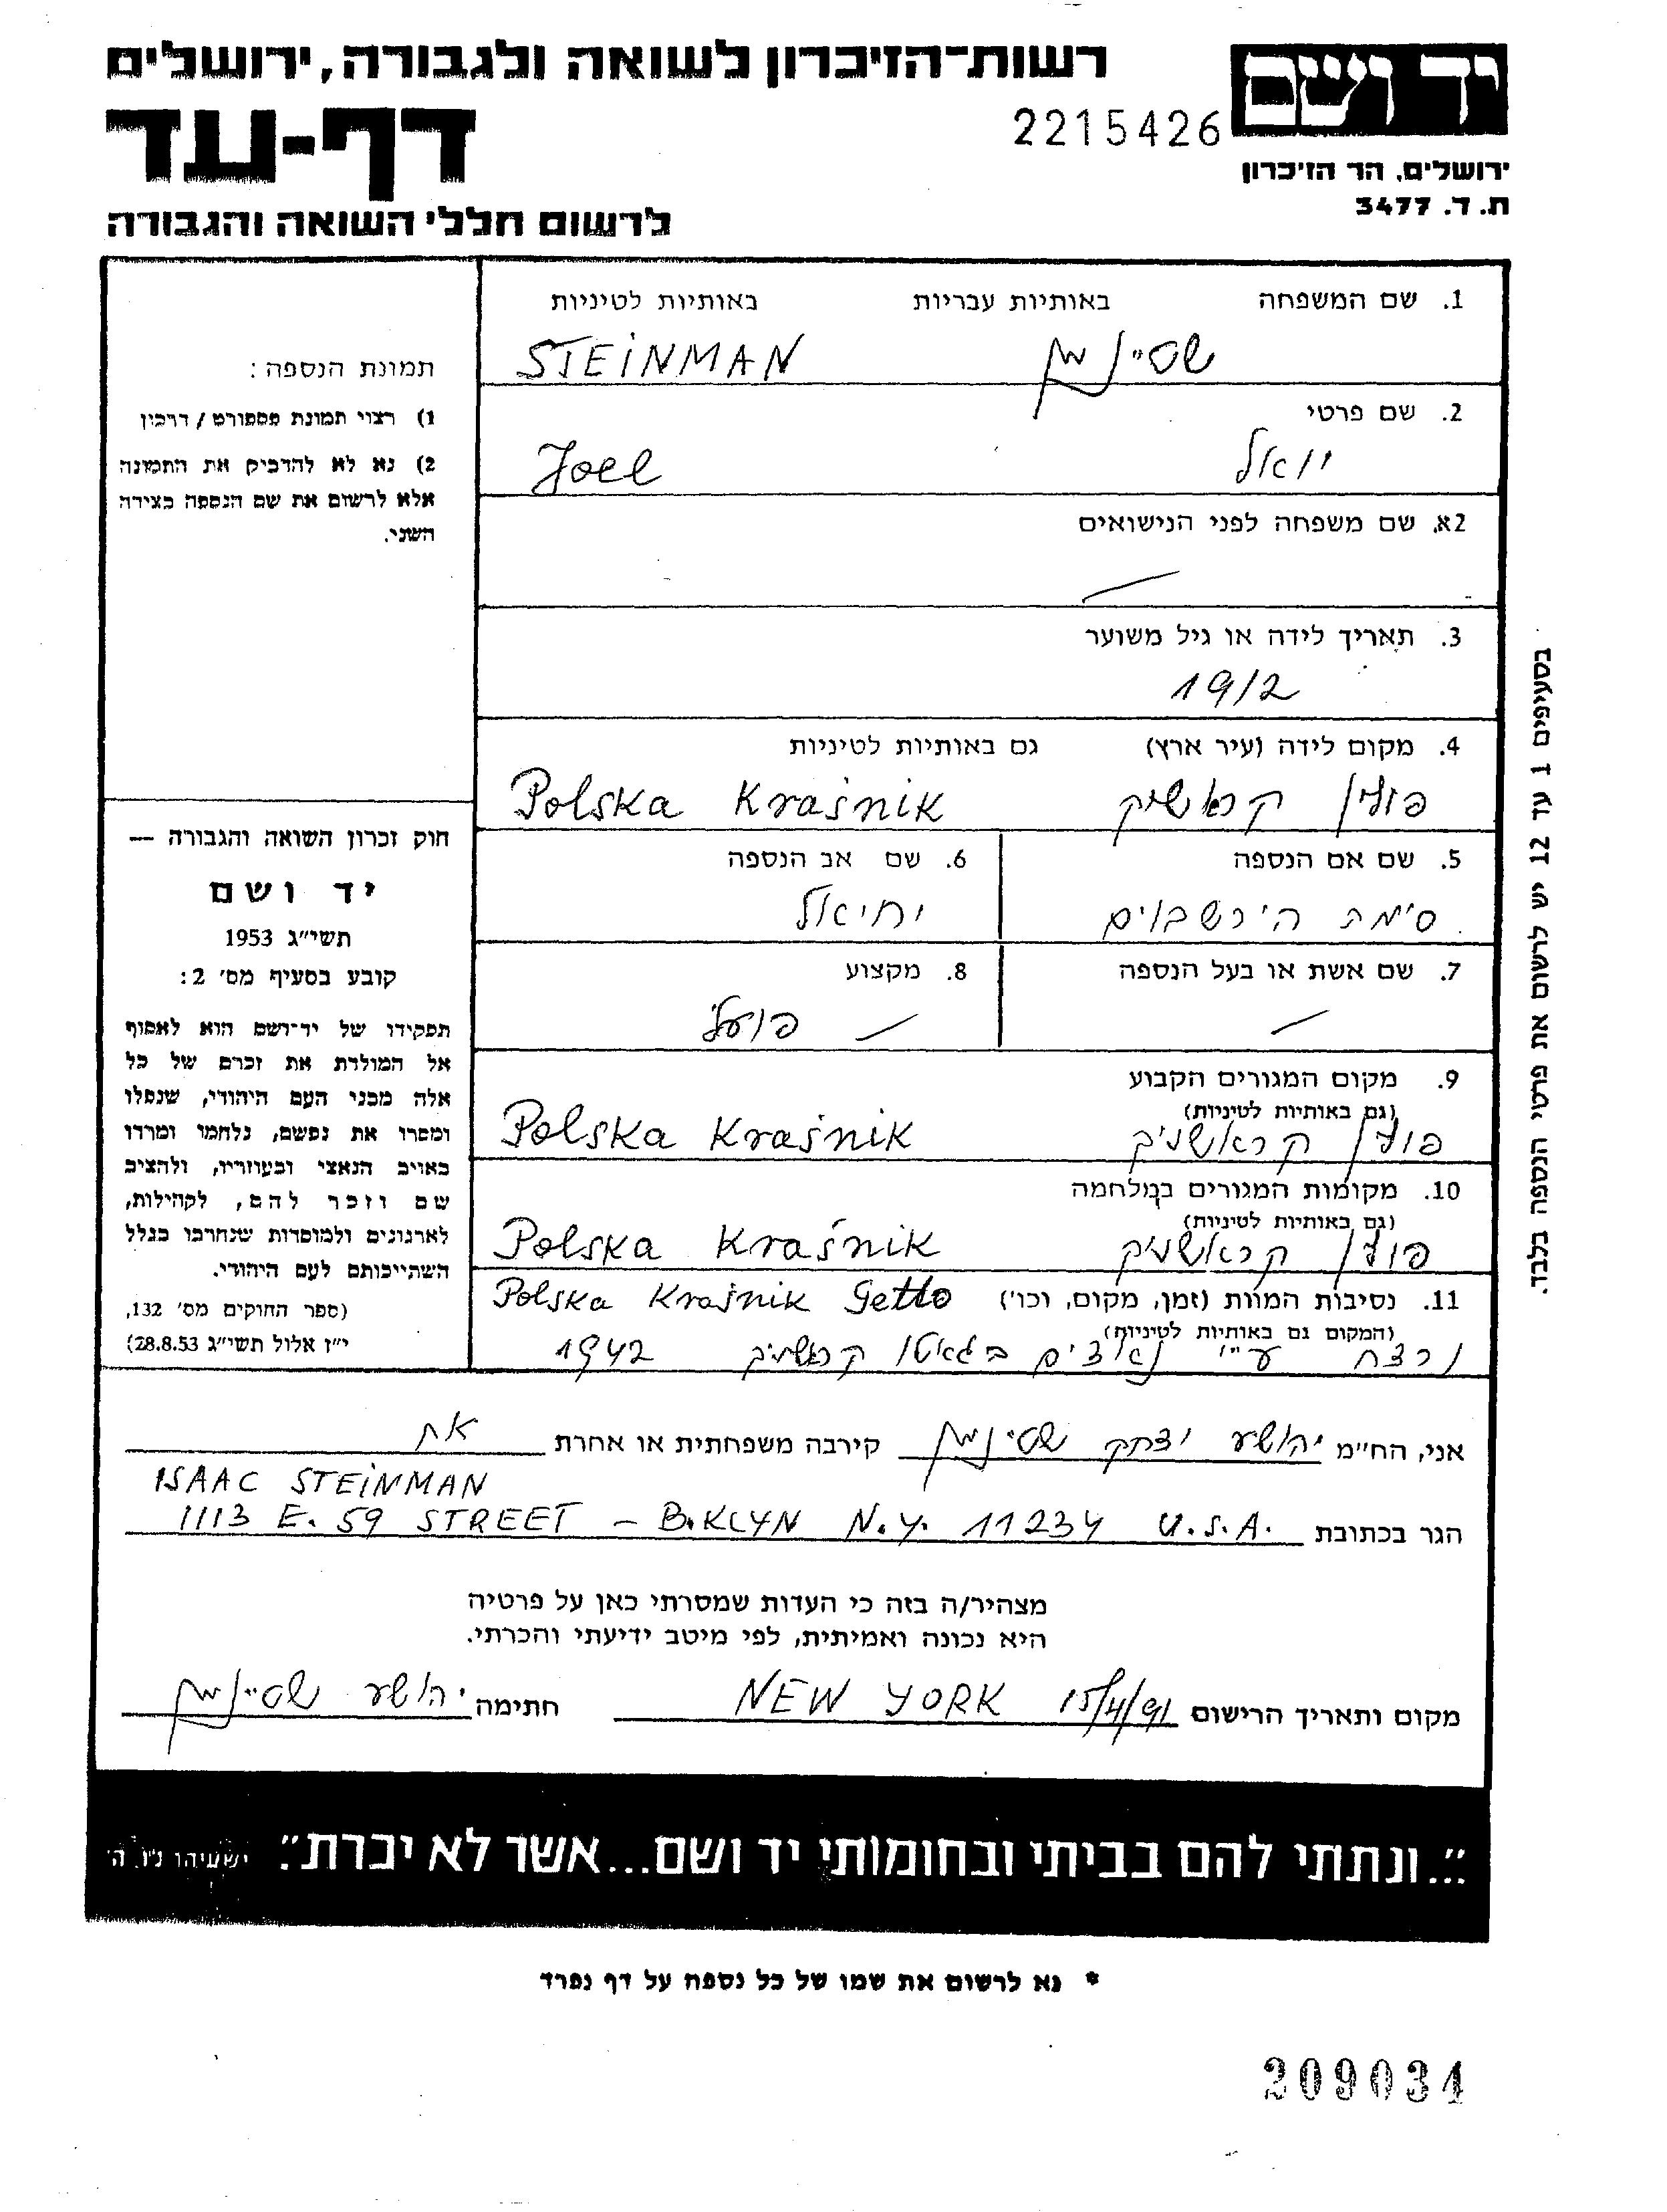 רשות־הזיכרון לשואה ולגבורה, ירושלים
יד ושם
דף-עד
2215426
ירושלים, הר הזיכרון
ת. ד. 3477
לרשום חללי השואה והגבורה
1. שם המשפחה באותיות עבריות באותיות לטיניות
שטיינמן STEINMAN
2. שם פרטי
יואל Joel
2א. שם משפחה לפני הנישואים
—
3. תאריך לידה או גיל משוער
1912
4. מקום לידה (עיר ארץ) גם באותיות לטיניות
פולין קראשניק Polska Kraśnik
5. שם אם הנספה
סימה הירשבוים
6. שם אב הנספה
יחיאל
7. שם אשת או בעל הנספה
—
8. מקצוע
— פועל
9. מקום המגורים הקבוע
(גם באותיות לטיניות)
פולין קראשניק Polska Kraśnik
10. מקומות המגורים במלחמה
(גם באותיות לטיניות)
פולין קראשניק Polska Kraśnik
11. נסיבות המוות (זמן, מקום, וכו') Polska Kraśnik Getto
(המקום גם באותיות לטיניות)
נרצח ע"י נאצים בגאטו קראשניק 1942
תמונת הנספה:
1) רצוי תמונת פספורט / דרכון
2) נא לא להדביק את התמונה
אלא לרשום את שם הנספה בצידה
השני.
חוק זכרון השואה והגבורה —
יד ושם
תשי"ג 1953
קובע בסעיף מס' 2:
תפקידו של יד־ושם הוא לאסוף
אל המולדת את זכרם של כל
אלה מבני העם היהודי, שנפלו
ומסרו את נפשם, נלחמו ומרדו
באויב הנאצי ובעוזריו, ולהציב
שם וזכר להם, לקהילות,
לארגונים ולמוסדות שנחרבו בגלל
השתייכותם לעם היהודי.
(ספר החוקים מס' 132,
י"ז אלול תשי"ג 28.8.53)
בסעיפים 1 עד 12 יש לרשום את פרטי הנספה בלבד.
אני, הח"מ יהושע יצחק שטיינמן קירבה משפחתית או אחרת אח
ISAAC STEINMAN
הגר בכתובת 1113 E. 59 STREET – B.KLYN N.Y. 11234 U.S.A.
מצהיר/ה בזה כי העדות שמסרתי כאן על פרטיה
היא נכונה ואמיתית, לפי מיטב ידיעתי והכרתי.
מקום ותאריך הרישום 15/4/91 NEW YORK חתימה יהושע שטיינמן
"...ונתתי להם בביתי ובחומותי יד ושם...אשר לא יכרת". ישעיהו נ"ו, ה'
* נא לרשום את שמו של כל נספה על דף נפרד
209034